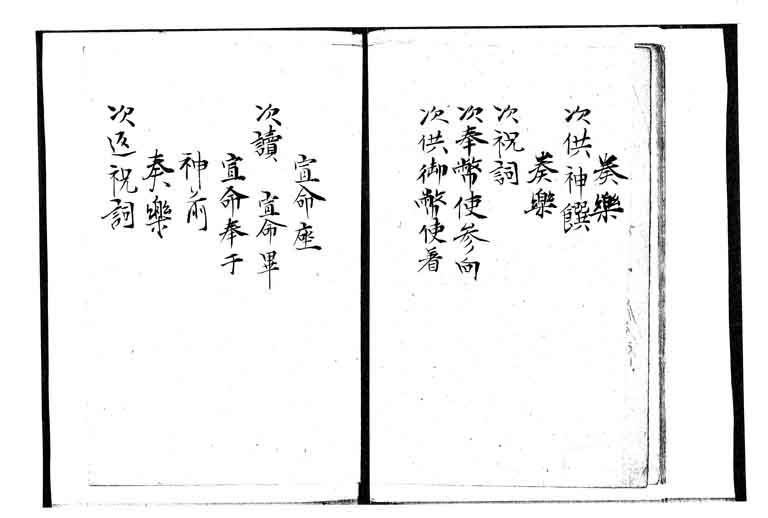 奏樂
次供神饌
奏樂
次祝詞
次奉幣使参向
次供御幣使着
宣命座
次讀宣命畢
宣命奉于
神前
奏樂
次返祝詞